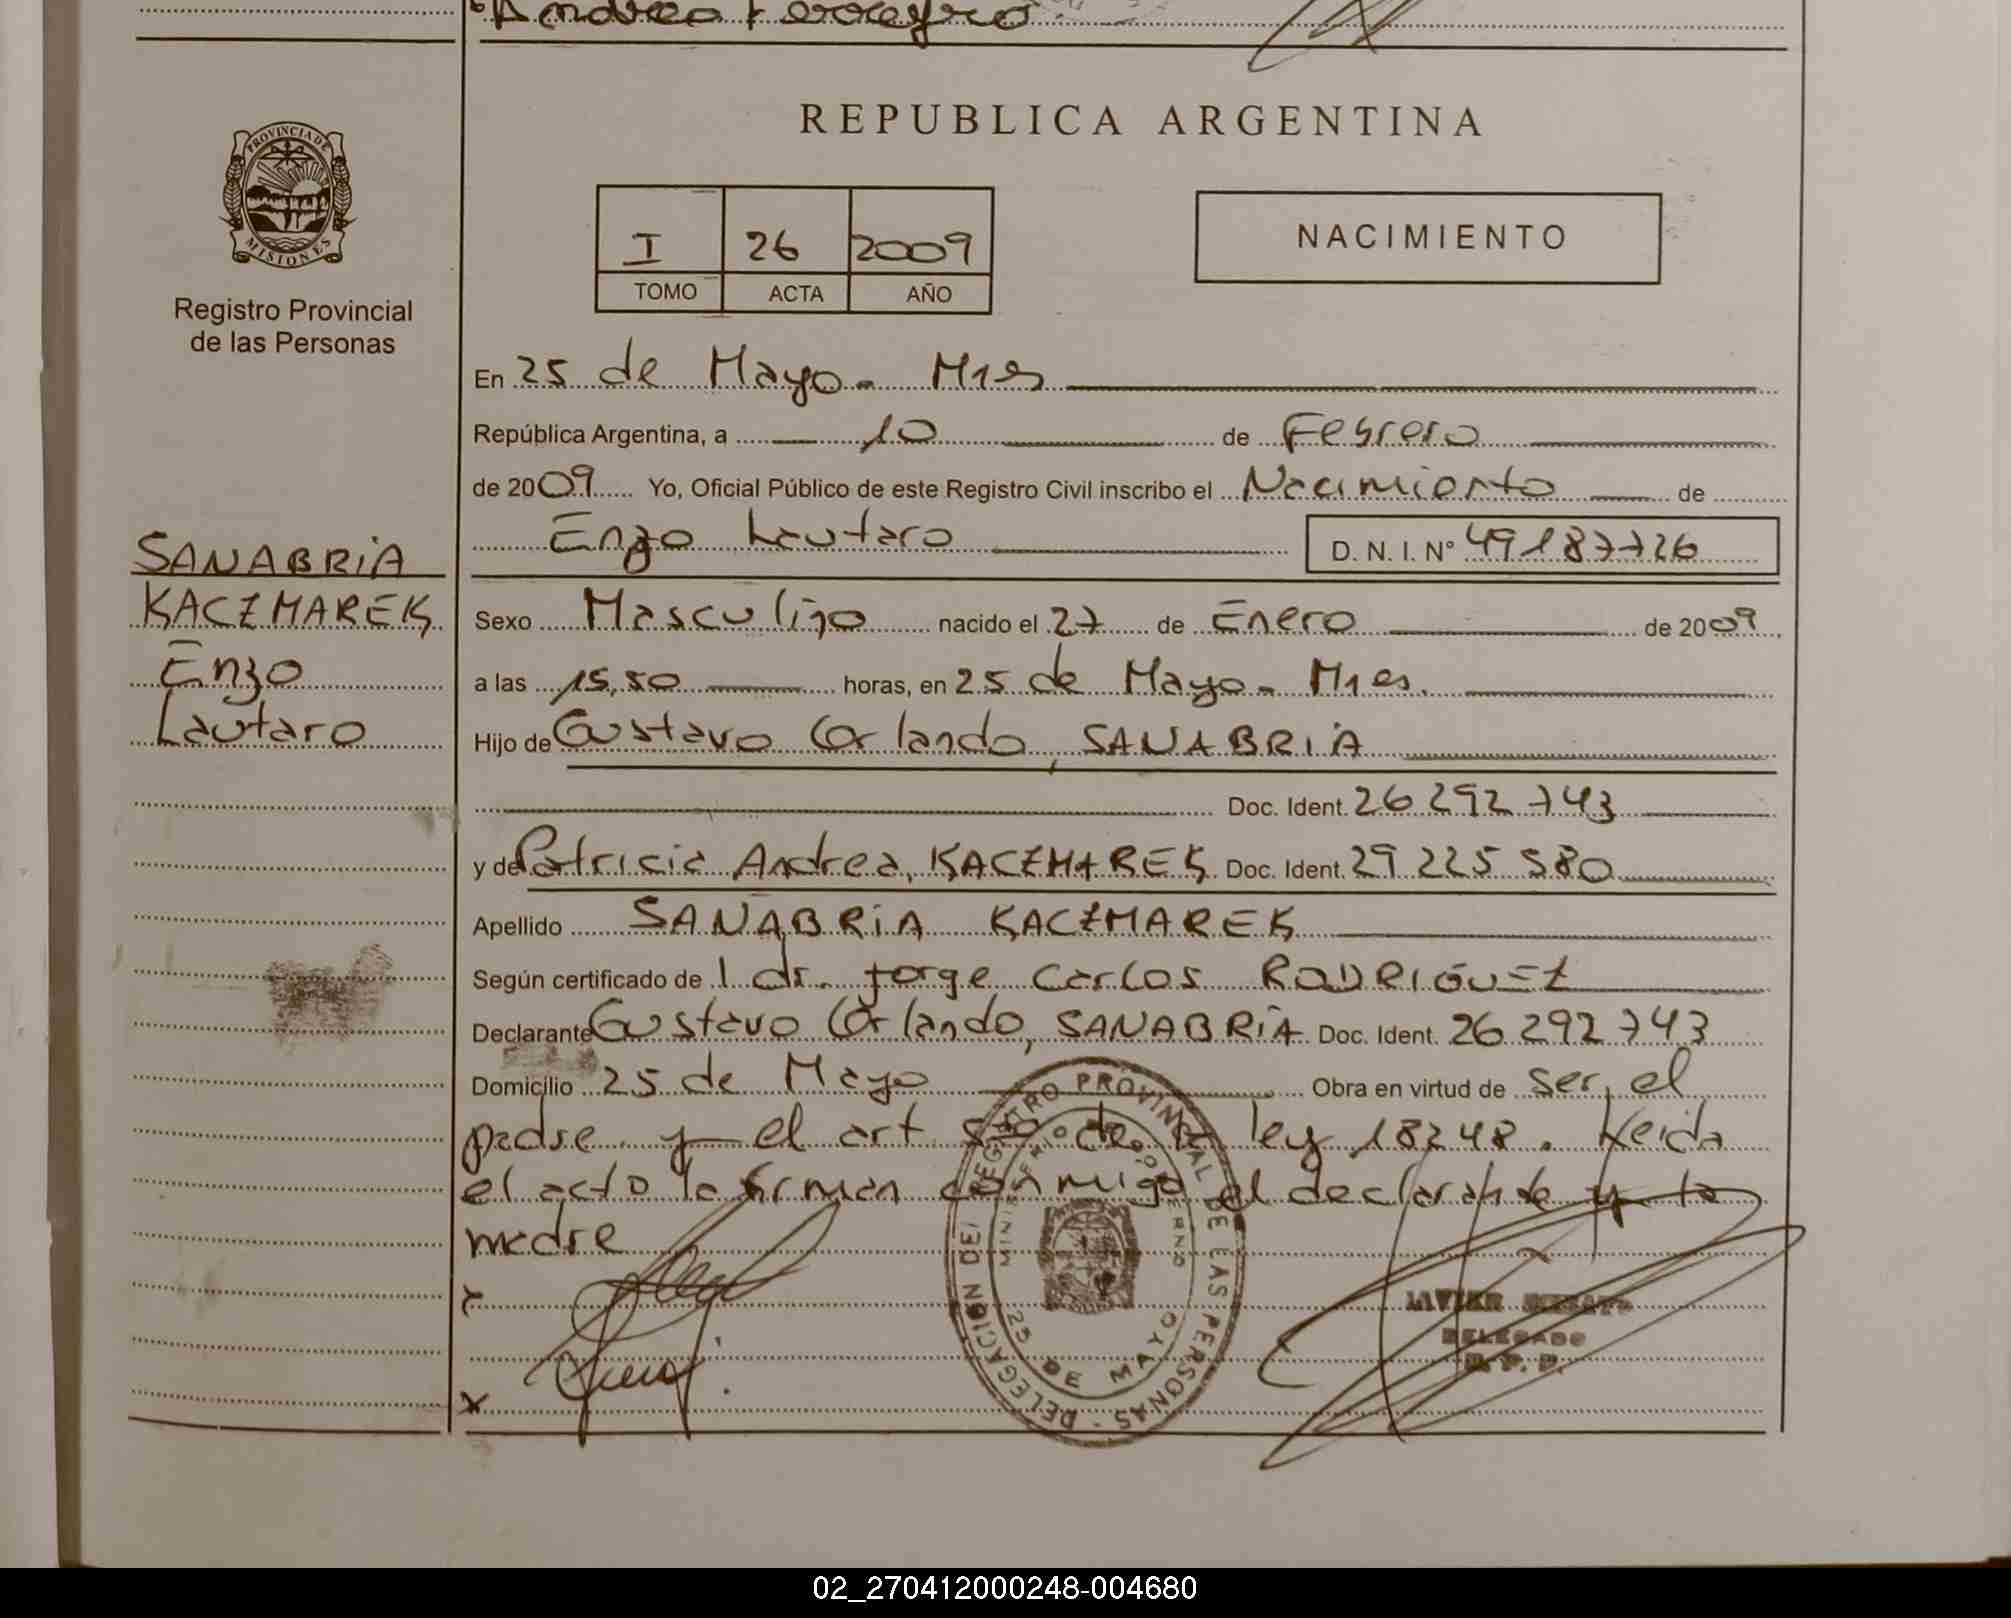 Andrea Ferreyro
REPUBLICA ARGENTINA
PROVINCIA DE
MISIONES
Registro Provincial
de las Personas
I 26 2009
TOMO ACTA AÑO
NACIMIENTO
En 25 de Mayo - Mnes
República Argentina, a 10 de Febrero
de 2009 Yo, Oficial Público de este Registro Civil inscribo el Nacimiento de
Enzo Lautaro D. N. I. N° 49187726
SANABRIA
KACZMAREK
Enzo
Lautaro
Sexo Masculino nacido el 27 de Enero de 2009
a las 15,50 horas, en 25 de Mayo - Mnes.
Hijo de Gustavo Orlando, SANABRIA
Doc. Ident. 26 292 743
y de Patricia Andrea, KACZMAREK Doc. Ident. 29 225 580
Apellido SANABRIA KACZMAREK
Según certificado de l dr. Jorge Carlos RODRIGUEZ
Declarante Gustavo Orlando, SANABRIA Doc. Ident. 26 292 743
Domicilio 25 de Mayo Obra en virtud de ser el
padre y el art 5to de la ley 18248. Leida
el acto la firman conmigo el declarante y la
madre
DELEGACION DEL REGISTRO PROVINCIAL DE LAS PERSONAS -
MINISTERIO DE GOBIERNO
25 DE MAYO
JAVIER
DELEGADO
R. P. P.
02_270412000248-004680